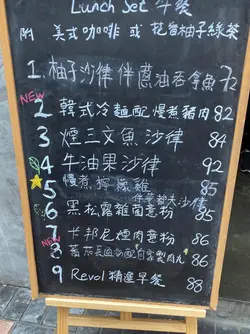 Lunch Set 午餐
美式咖啡 或 花旗柚子綠茶
1. 柚子沙律伴蔥油吞拿魚 72
NEW
2 韓式冷麵配慢煮豬肉 82
3 煙三文魚沙律 84
4 牛油果沙律 92
5 慢煮檸檬雞 85
伴華都夫沙律
6 黑松露雜菌意粉 85
7 卡邦尼煙肉意粉 86
NEW
8 自家製肉丸 86
9 Revol 精選早餐 88